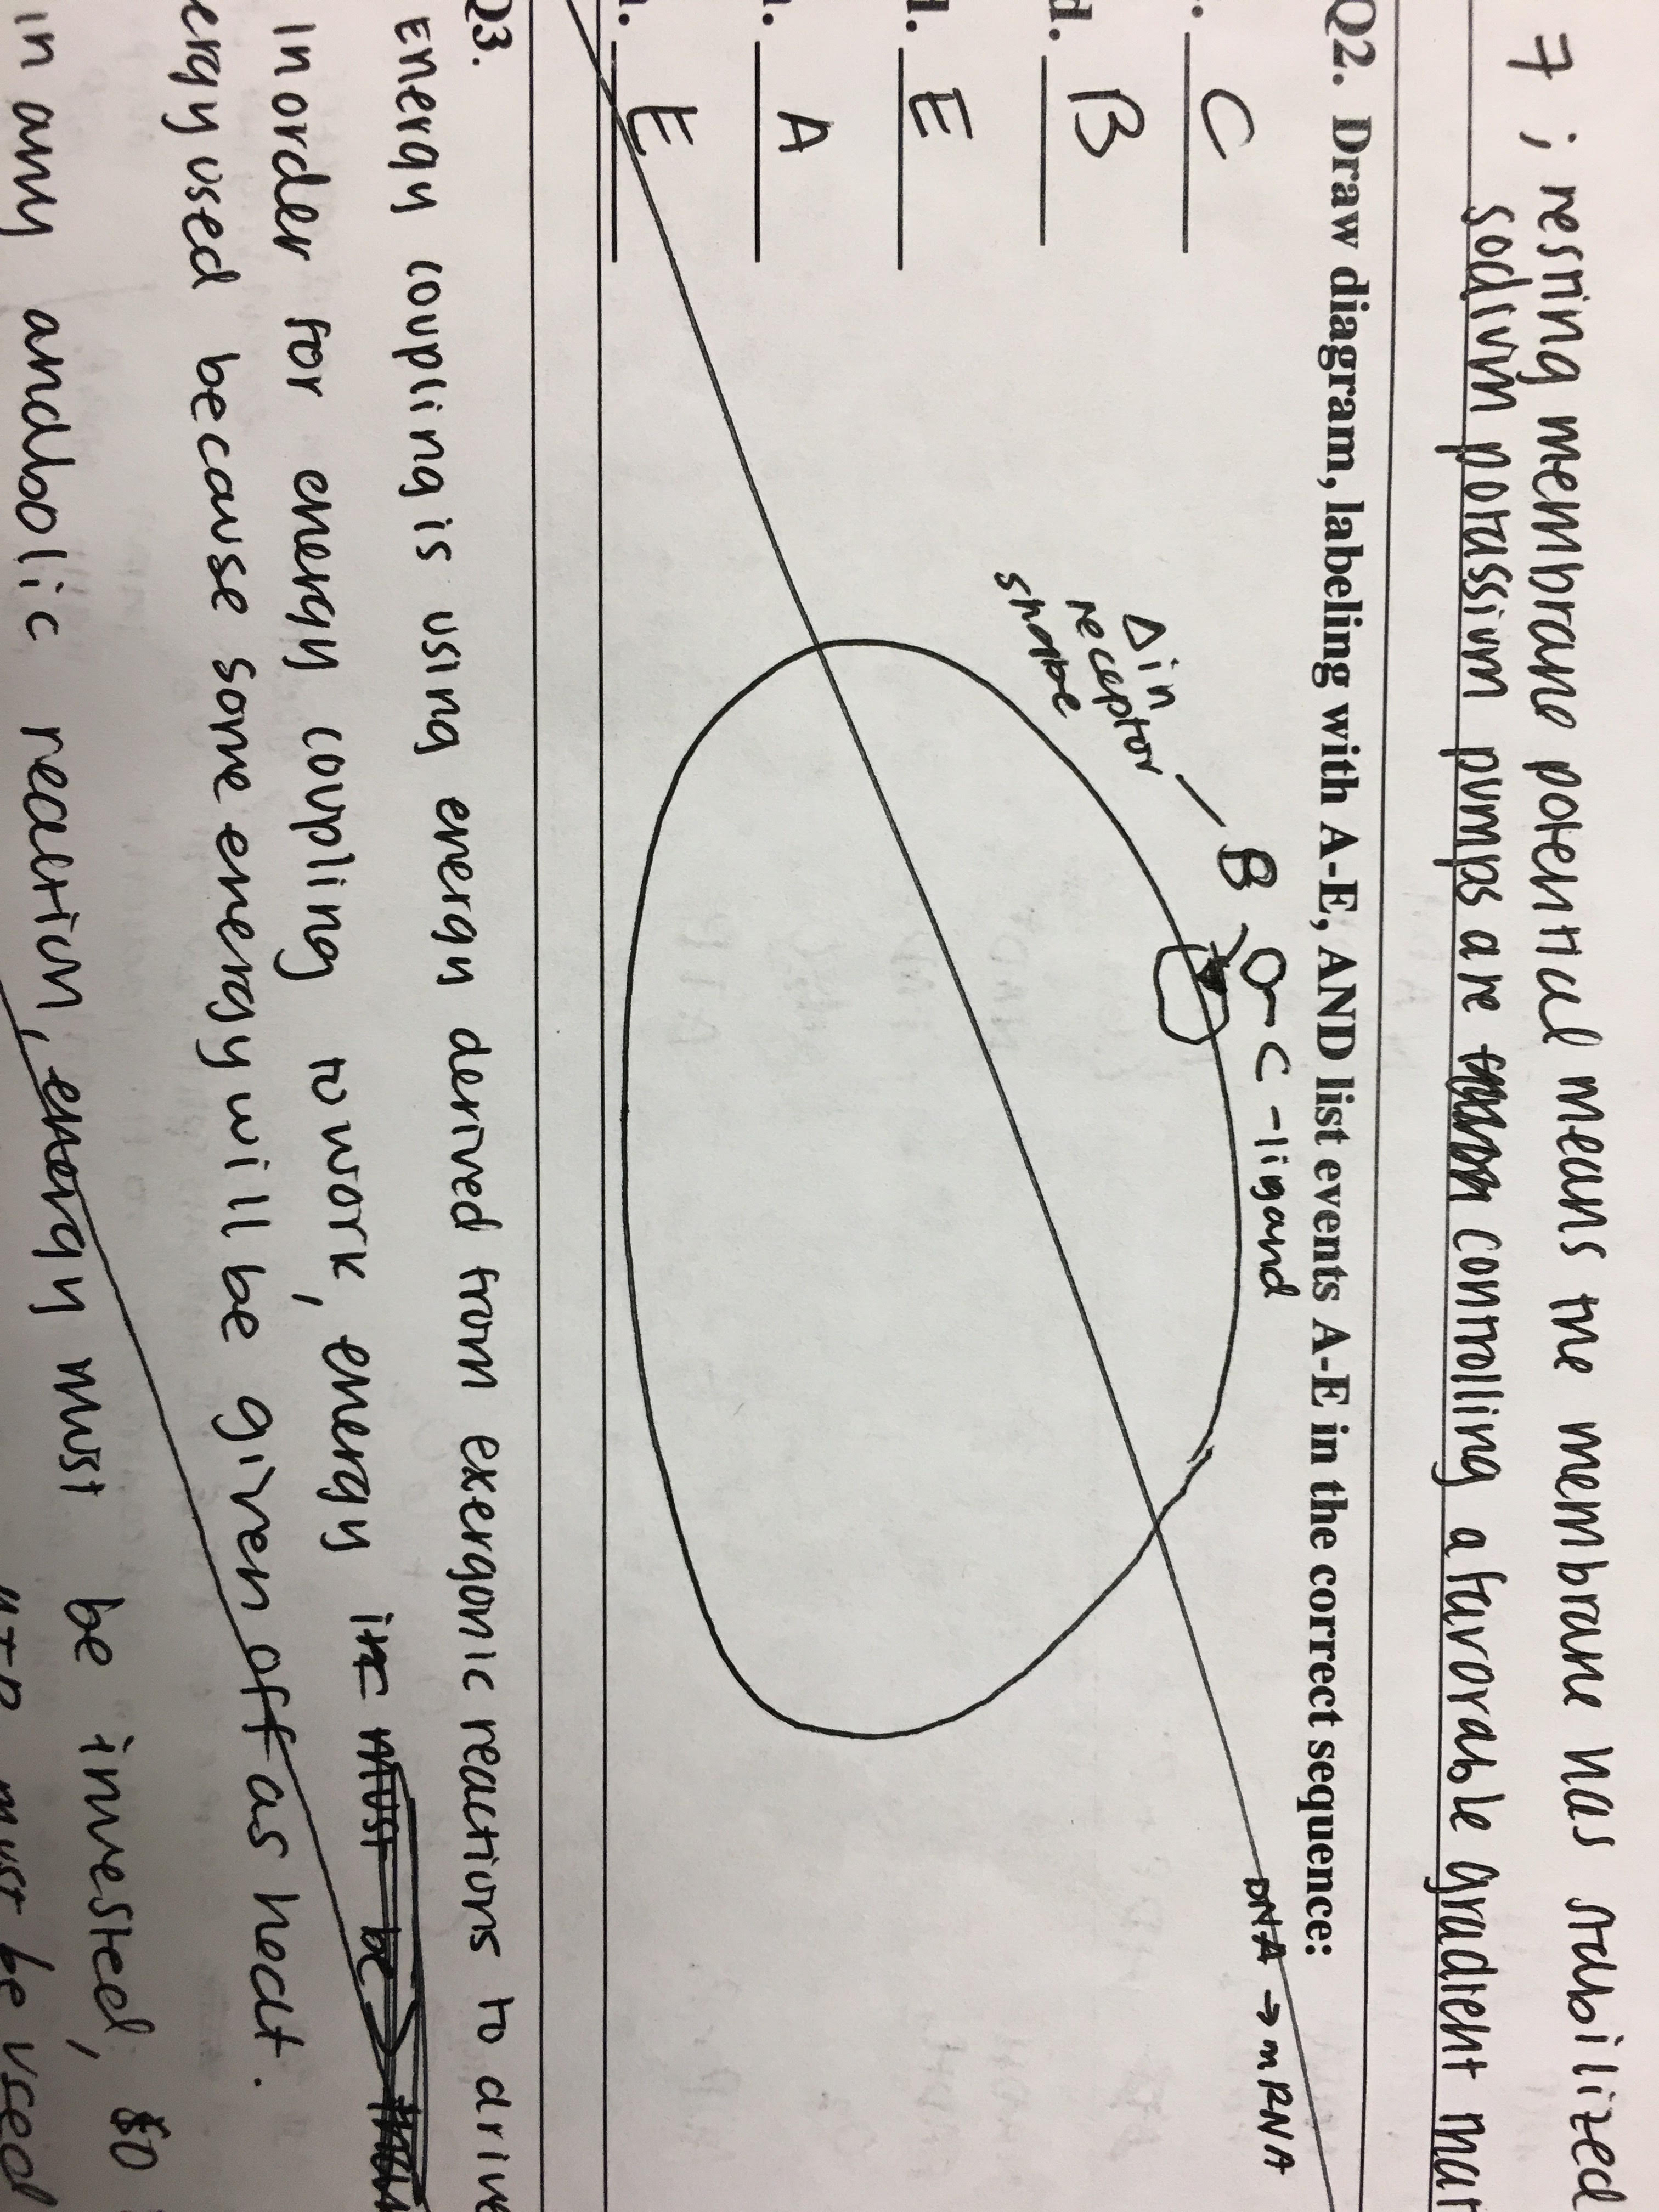 7 ; resting membrane potential means the membrane has stabilized
sodium potassium pumps are controlling a favorable gradient
Q2. Draw diagram, labeling with A-E, AND list events A-E in the correct sequence:
. C
d. B
l. E
. A
. E
Δ in
receptor
shape
B
C - ligand
DNA → mRNA
Q3.
Energy coupling is using energy derived from exergonic reactions to drive
In order for energy coupling to work, energy
ergy used because some energy will be given off as heat.
in any anabolic reaction, energy must be invested, so
must be used